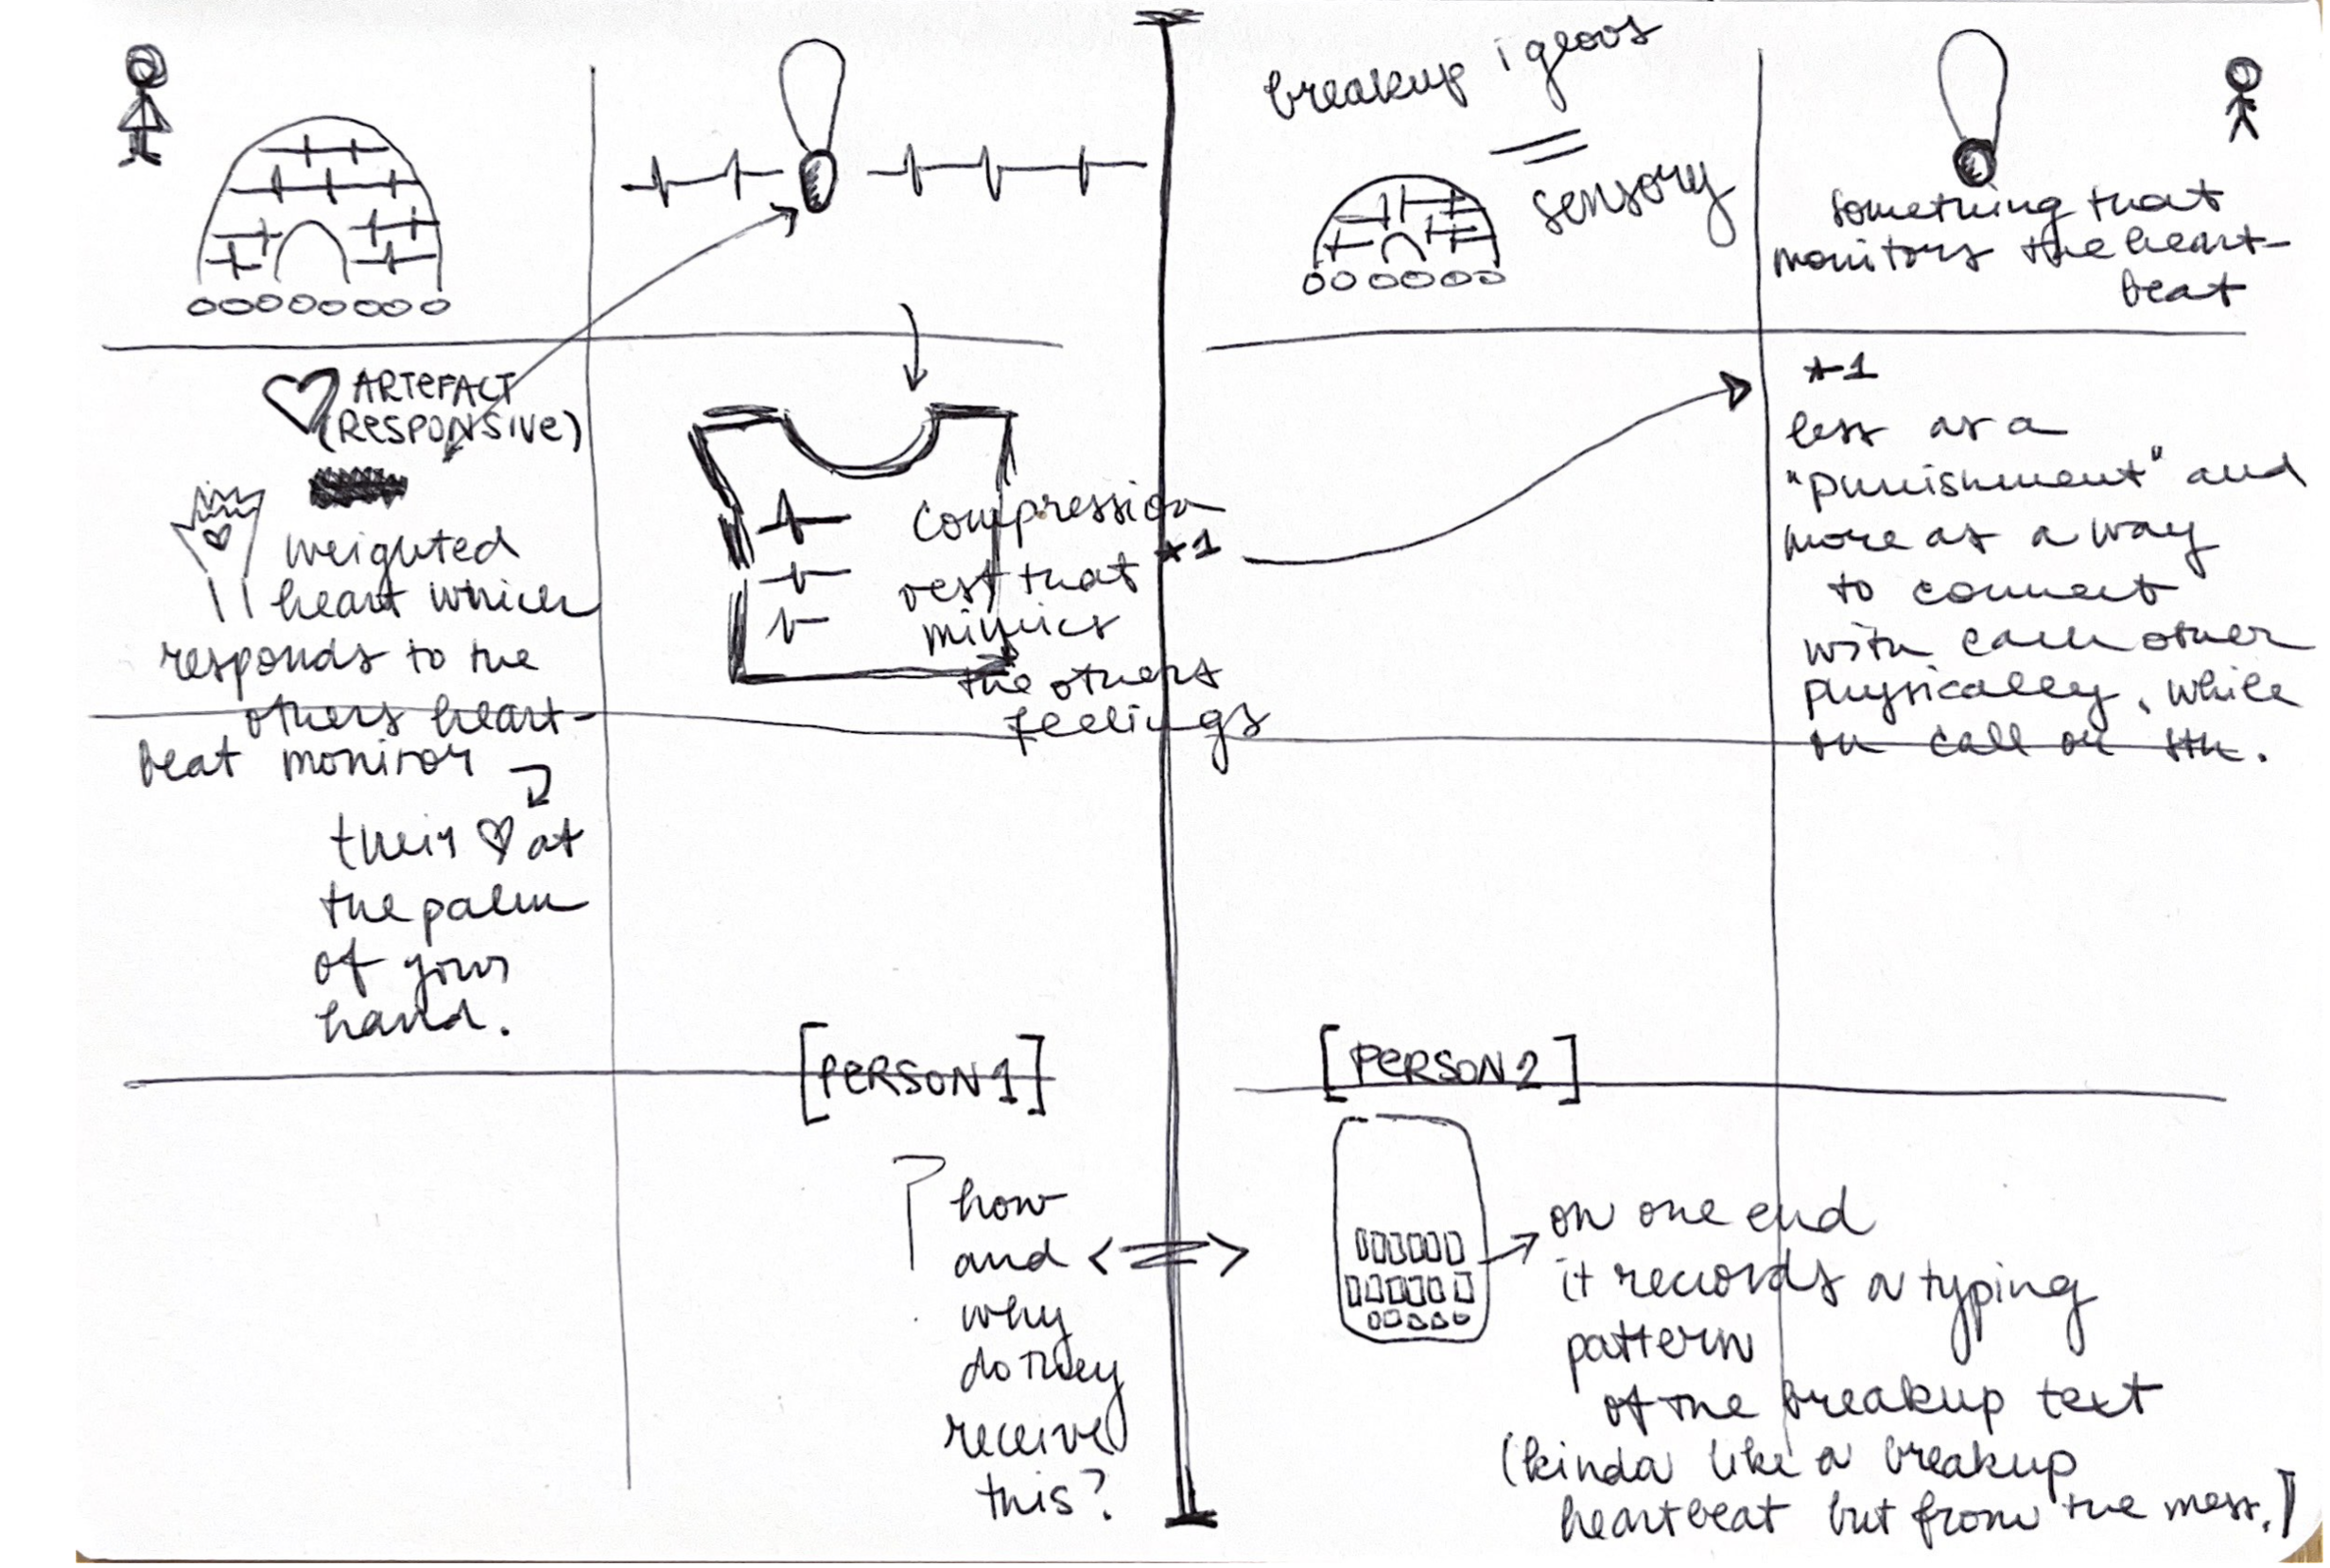 breakup igloos
sensory
something that
monitors the heart-
beat
ARTEFACT
(RESPONSIVE)
weighted
heart which
responds to the
others heart-
beat monitor
their ♡ at
the palm
of your
hand.
compression
vest that *1
mimics
the others
feelings
*1
less as a
"punishment" and
more as a way
to connect
with each other
physically, while
on call or sth.
[PERSON 1]
[PERSON 2]
how
and
why
do they
receive
this?
on one end
it records a typing
pattern
of the breakup text
(kinda like a breakup
heartbeat but from the mess.)